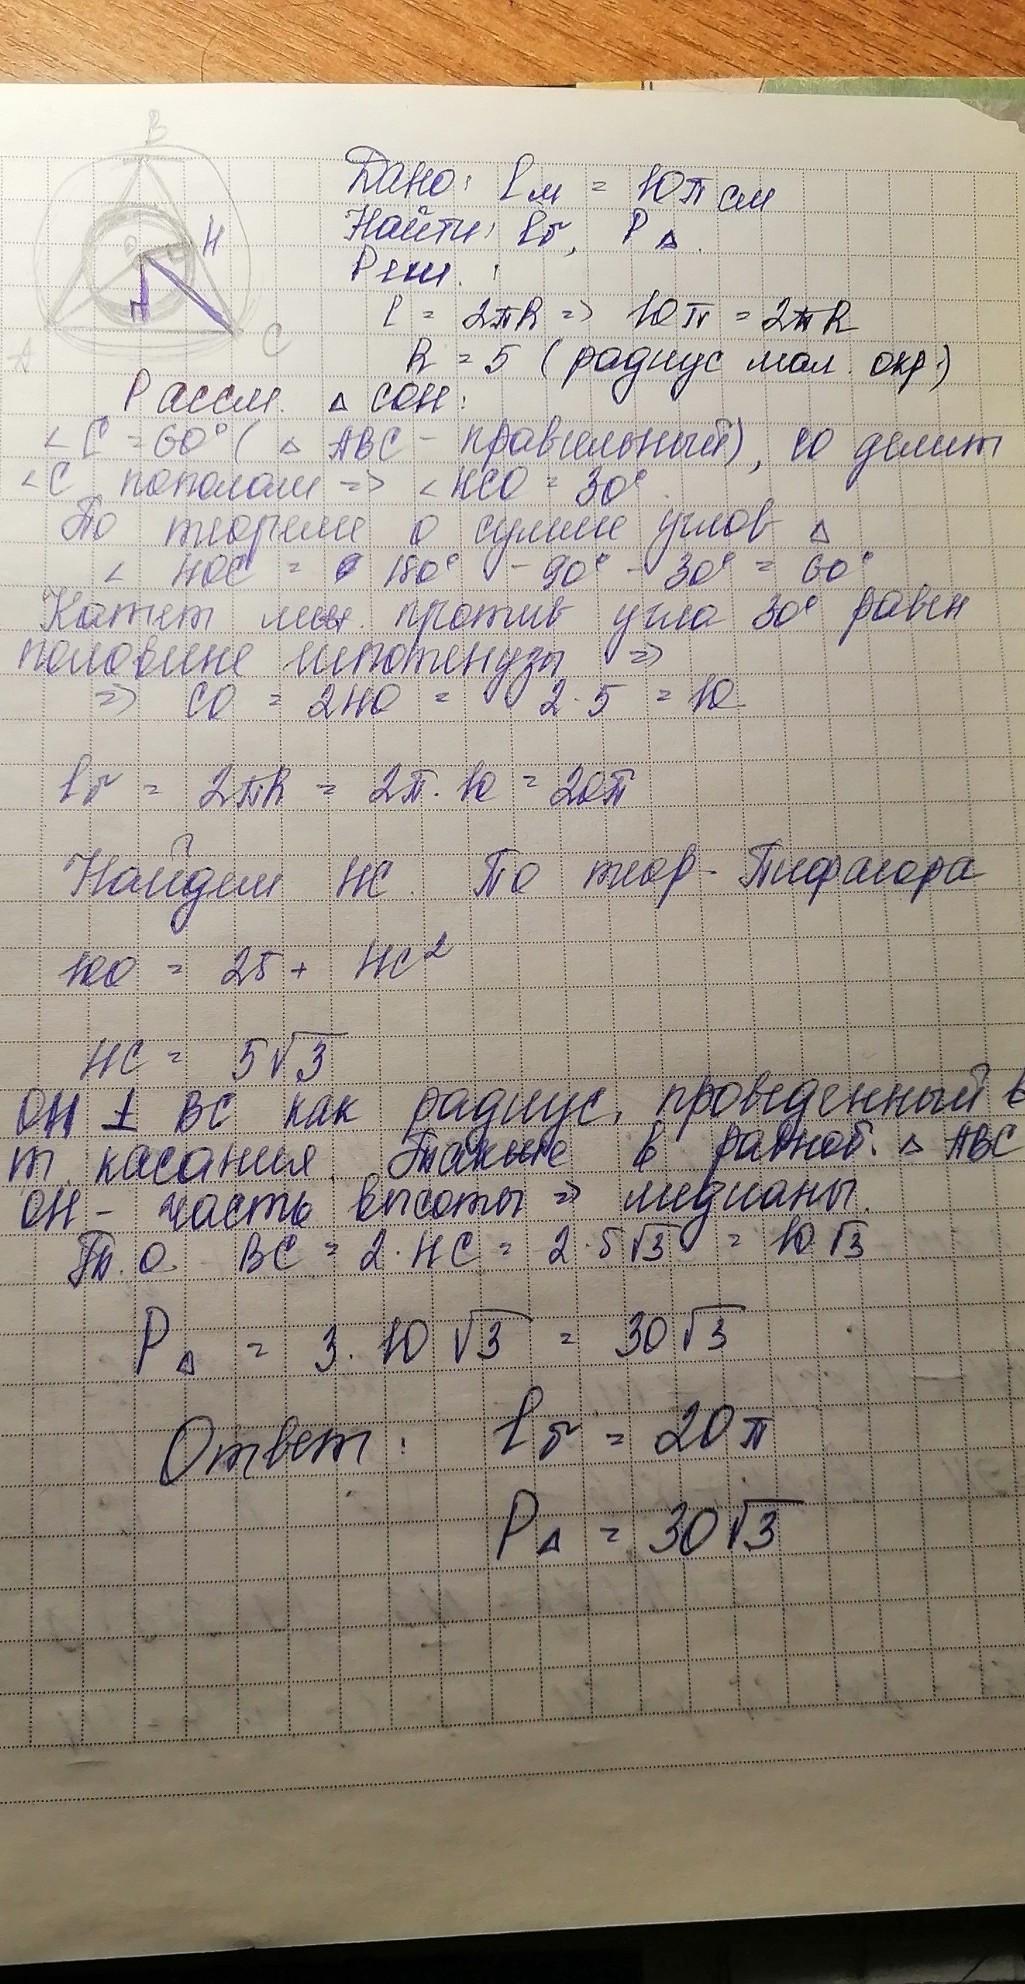 B
O
H
A
C
Дано: lм = 10π см
Найти: lб, P△.
Реш.:
l = 2πR => 10π = 2πR
R = 5 (радиус мал. окр.)
Рассм. △ COH:
∠C = 60° (△ ABC - правильный), CO делит
∠C пополам => ∠HCO = 30°.
По теореме о сумме углов △
∠ HOC = 180° - 90° - 30° = 60°
Катет леж. против угла 30° равен
половине гипотенузы =>
=> CO = 2HO = 2·5 = 10
lб = 2πR = 2π·10 = 20π
Найдем HC. По теор. Пифагора
100 = 25 + HC²
HC = 5√3
OH ⊥ BC как радиус, проведенный в
т. касания. Также в равноб. △ ABC
OH - часть высоты => медианы.
Т.о. BC = 2·HC = 2·5√3 = 10√3
P△ = 3·10√3 = 30√3
Ответ: lб = 20π
P△ = 30√3